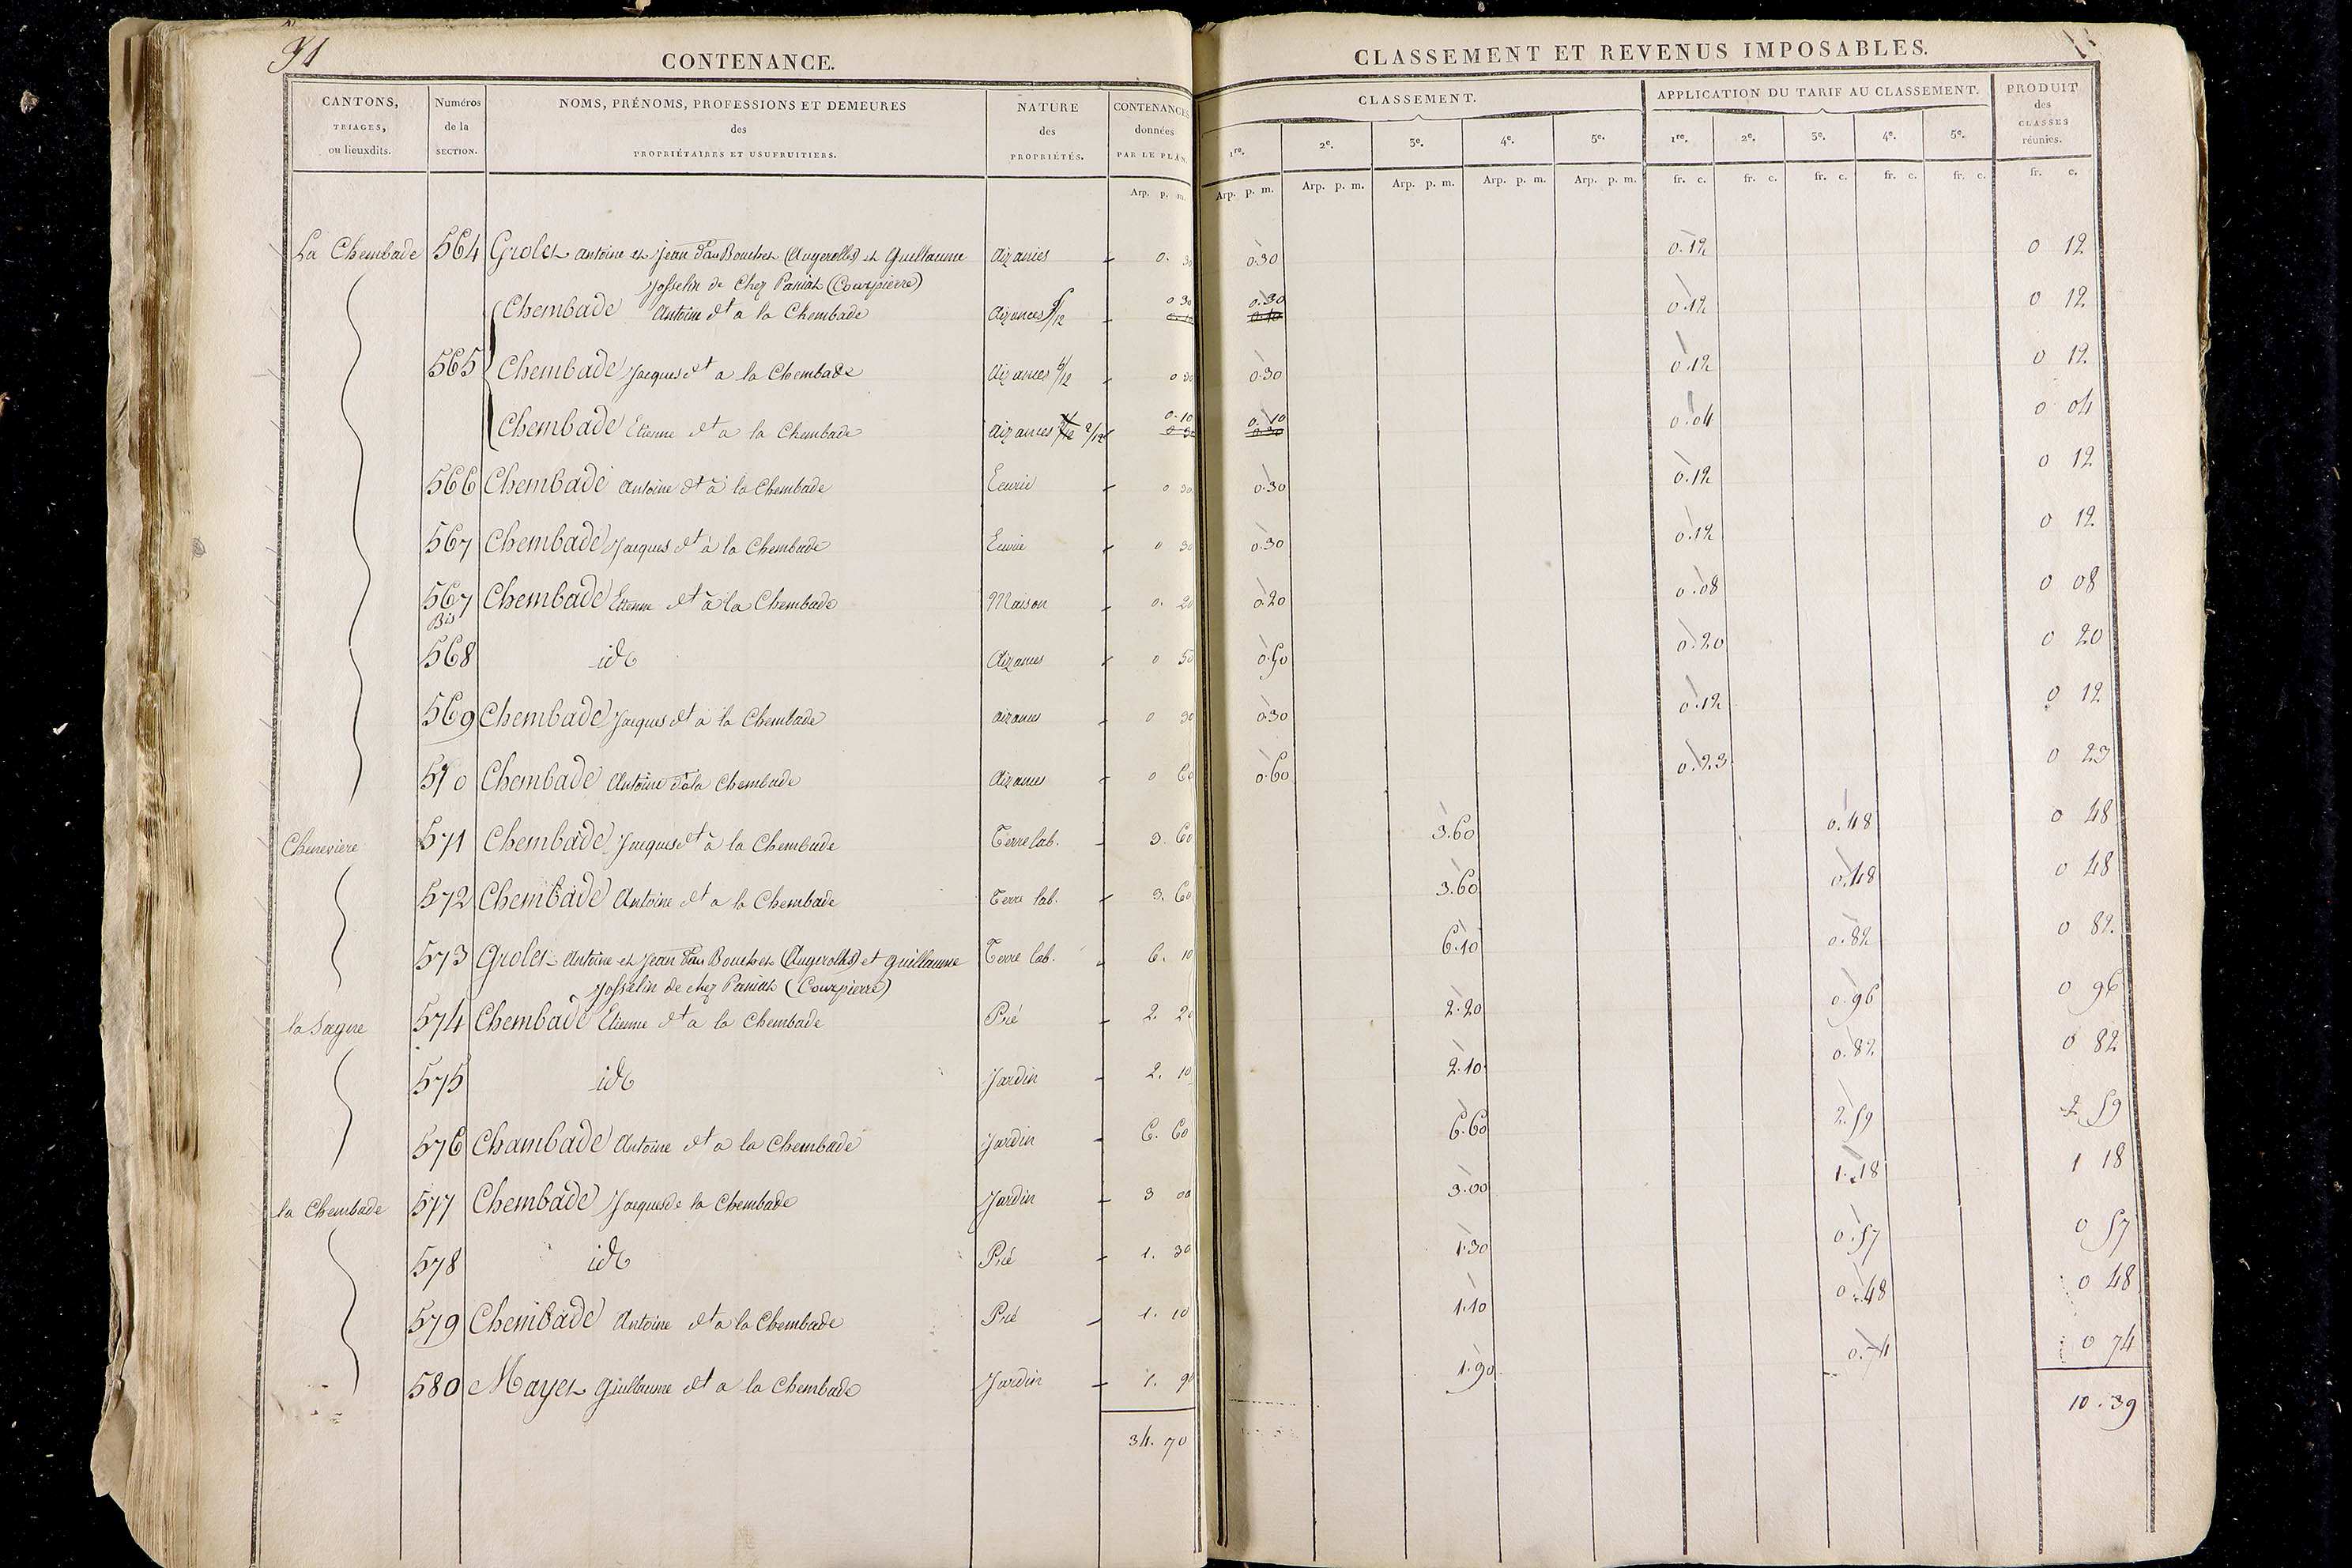 91
CONTENANCE.
CLASSEMENT ET REVENUS IMPOSABLES.
CANTONS, TRIAGES, ou lieuxdits.
Numéros de la SECTION.
NOMS, PRÉNOMS, PROFESSIONS ET DEMEURES des PROPRIÉTAIRES ET USUFRUITIERS.
NATURE des PROPRIÉTÉS.
CONTENANCES données PAR LE PLAN.
CLASSEMENT.
APPLICATION DU TARIF AU CLASSEMENT.
PRODUIT des CLASSES réunies.
1re. 2e. 3e. 4e. 5e. 1re. 2e. 3e. 4e. 5e.
Arp. p. m. Arp. p. m. Arp. p. m. Arp. p. m. Arp. p. m. Arp. p. m. fr. c. fr. c. fr. c. fr. c. fr. c. fr. c.
La Chembade 564 Grolet antoine et Jean Bouchet (Augerolles) et Guillaume Aizances 0. 30 0.30 0.12 0 12
Josselin de Chez Paniat (Courpierre)
Chembade Antoine dt a la Chembade Aizances /12 0 30 0.30 0.12 0 12
565 Chembade Jacques dt a la Chembade Aizances /12 0 30 0.30 0.12 0 12
Chembade Etienne dt a la Chembade Aizances 2/12 0.10 0.10 0.04 0 04
566 Chembade Antoine dt à la Chembade Ecurie 0 30 0.30 0.12 0 12
567 Chembade Jacques dt à la Chembade Ecurie 0 30 0.30 0.12 0 12
567 Bis Chembade Etienne dt à la Chembade Maison 0. 20 0.20 0.08 0 08
568 id Aizances 0 50 0.50 0.20 0 20
569 Chembade Jacques dt a la Chembade aizances 0 30 0.30 0.12 0 12
570 Chembade Antoine dt à la Chembade Aizances 0 60 0.60 0.23 0 23
Chenevière 571 Chembade Jacques dt à la Chembade Terre lab. 3. 60 3.60 0.48 0 48
572 Chembade Antoine dt a la Chembade Terre lab. 3. 60 3.60 0.48 0 48
573 Grolet Antoine et Jean Bouchet (Augerolles) et Guillaume Terre lab. 6. 10 6.10 0.82 0 82
Josselin de chez Paniat (Courpierre)
la Sagne 574 Chembade Etienne dt a la Chembade Pré 2. 20 2.20 0.96 0 96
575 id Jardin 2. 10 2.10 0.82 0 82
576 Chambade Antoine dt a la Chembade Jardin 6. 60 6.60 2.59 2 59
la Chembade 577 Chembade Jacques de la Chembade Jardin 3 00 3.00 1.18 1 18
578 id Pré 1. 30 1.30 0.57 0 57
579 Chembade Antoine dt a la Chembade Pré 1. 10 1.10 0.48 0 48
580 Mayet Guillaume dt a la Chembade Jardin 1. 90 1.90 0.74 0 74
34. 70 10.39